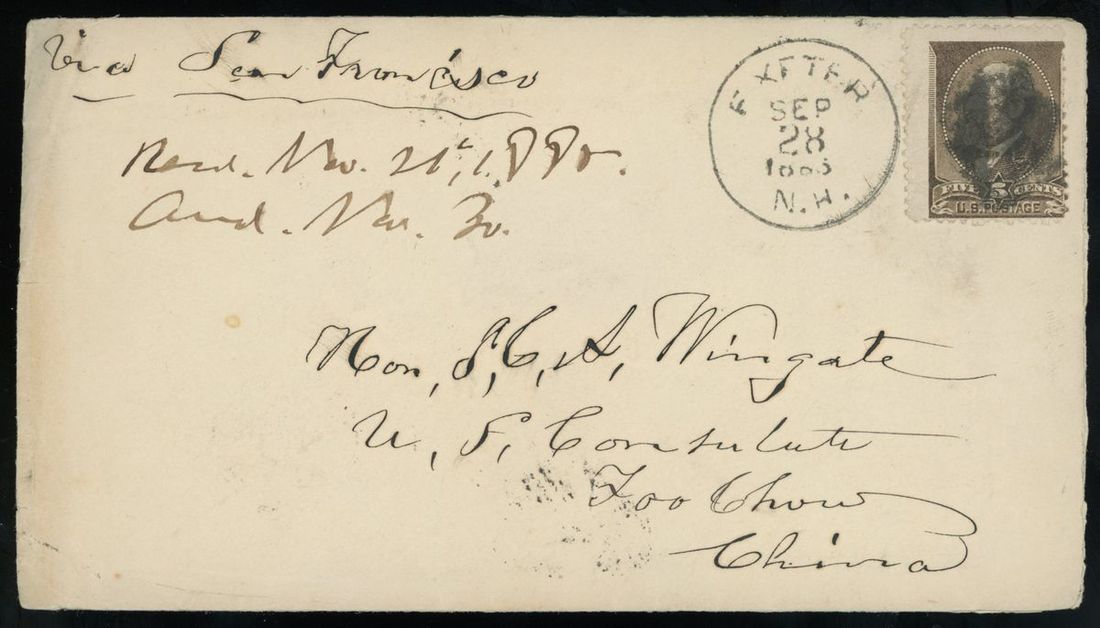 Via San Francisco
Recd. Nov. 21st, 1885.
Ansd. Nov. 30.
EXETER
SEP
28
1885
N.H.
FIVE 5 CENTS
U.S. POSTAGE
Hon, J, C, A, Wingate
U, S, Consulate
Foo Chow
China